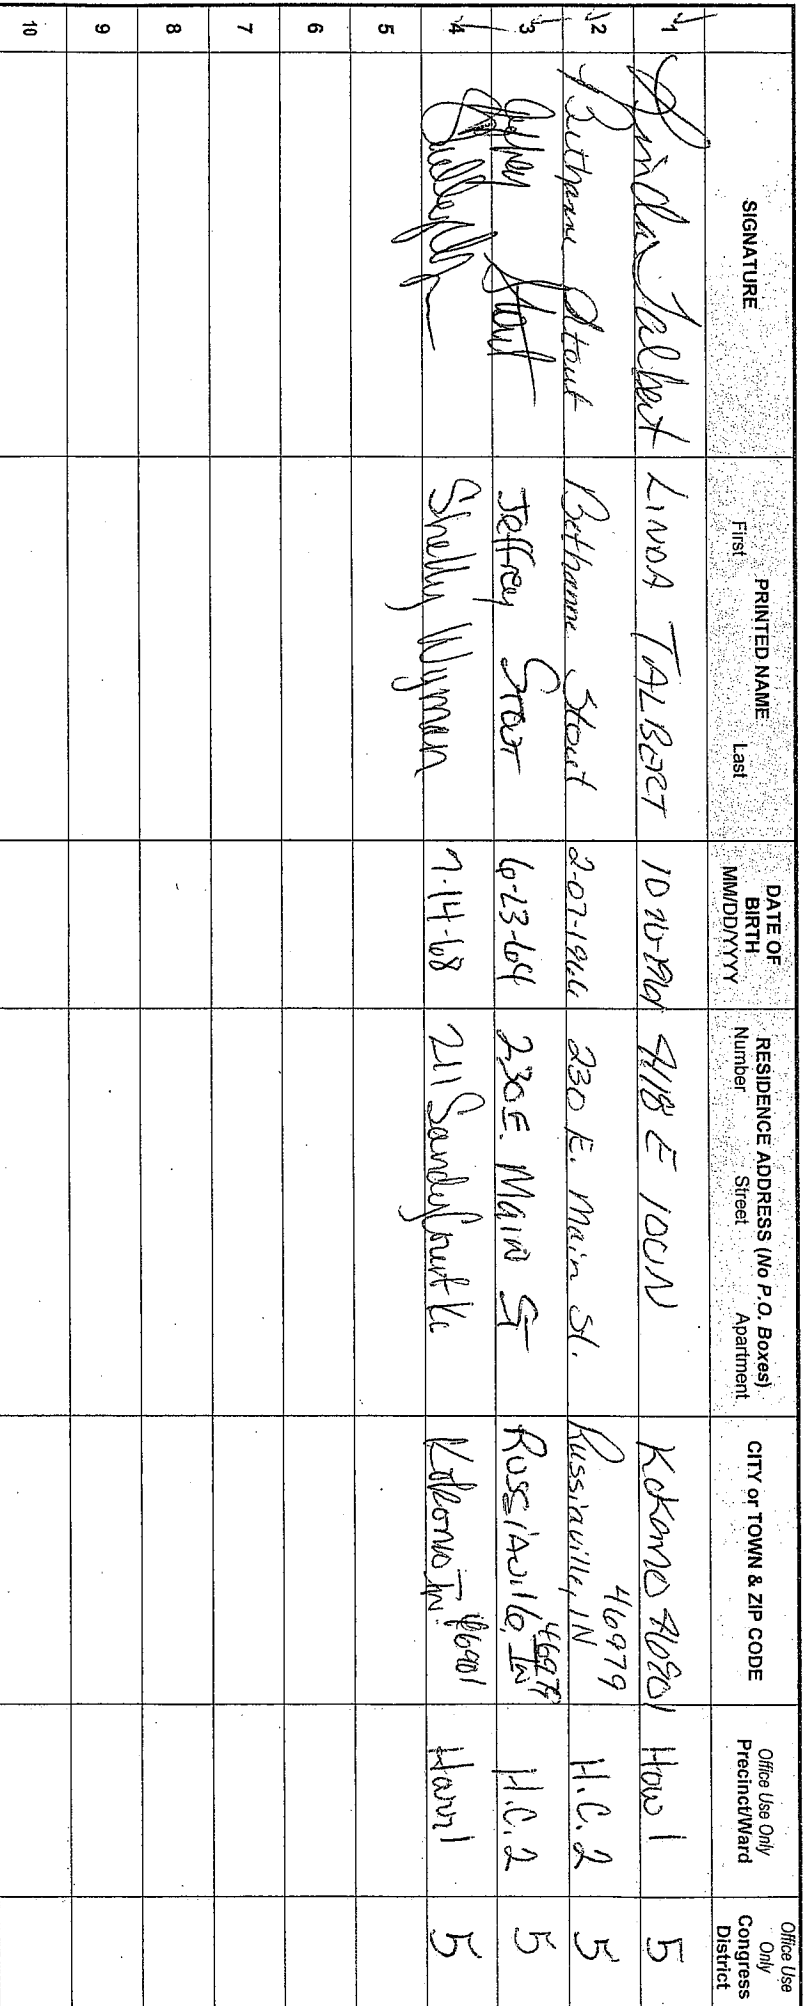 SIGNATURE
PRINTED NAME
First Last
DATE OF BIRTH
MM/DD/YYYY
RESIDENCE ADDRESS (No P.O. Boxes)
Number Street Apartment
CITY or TOWN & ZIP CODE
Office Use Only
Precinct/Ward
Office Use Only
Congress District
1 Linda Talbert LINDA TALBERT 4118 E 100N Kokomo 46901 How 1 5
2 Bethanne Stout Bethanne Stout 2-07-1966 230 E. Main St. Russiaville, IN 46979 H.C. 2 5
3 Jeffrey Stout Jeffrey Stout 6-23-64 230 E. Main St Russiaville, IN 46979 H.C. 2 5
4 Shelly Wyman 7-14-68 211 Sandy Court Kokomo IN 46901 Harr 1 5
5
6
7
8
9
10